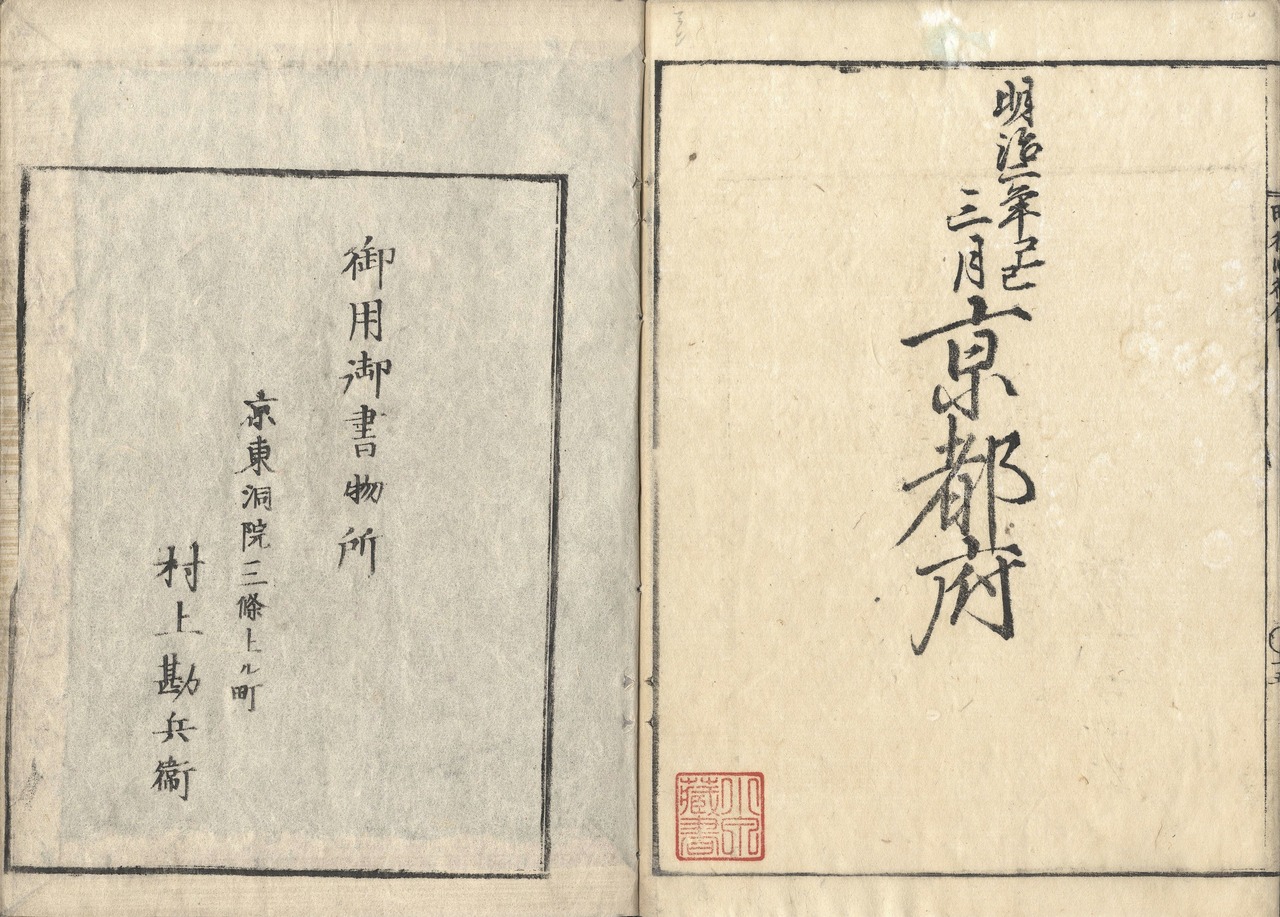 明治二年己巳
三月
京都府
小泉
藏書
御用御書物所
京東洞院三條上ル町
村上勘兵衛